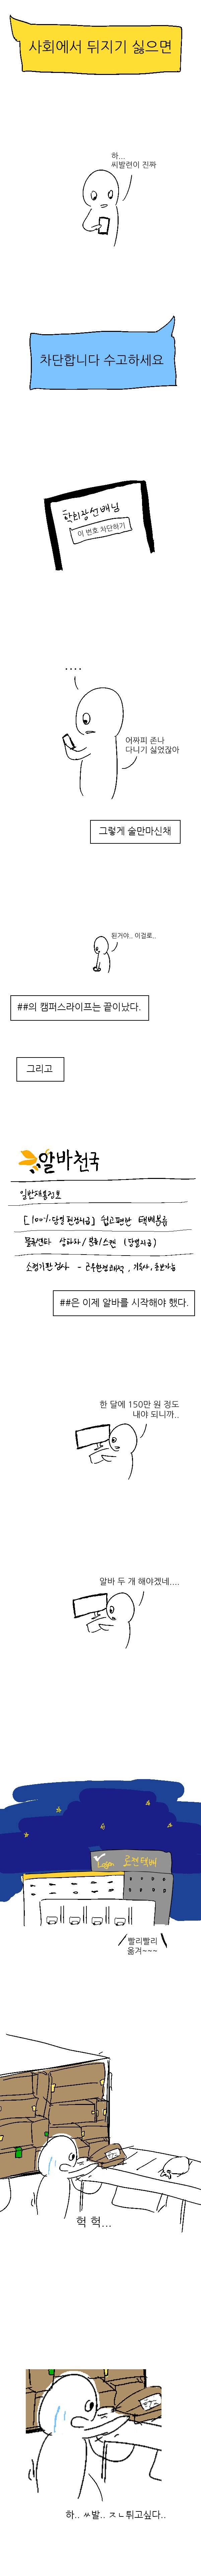 사회에서 뒤지기 싫으면
하...
씨발련이 진짜
차단합니다 수고하세요
학회장선배님
이 번호 차단하기
....
어짜피 존나
다니기 싫었잖아
그렇게 술만마신채
된거야.. 이걸로..
##의 캠퍼스라이프는 끝이났다.
그리고
알바천국
일반채용정보
[100% 당일 현장지급] 쉽고편한 택배분류
물류센타 상하차/분류/스캔 (당일지급)
소형기판 검사 -
기숙사,
##은 이제 알바를 시작해야 했다.
한 달에 150만 원 정도
내야 되니까..
알바 두 개 해야겠네....
Logen 로젠택배
빨리빨리
옮겨~~~
헉 헉...
하.. ㅆ발.. ㅈㄴ튀고싶다..